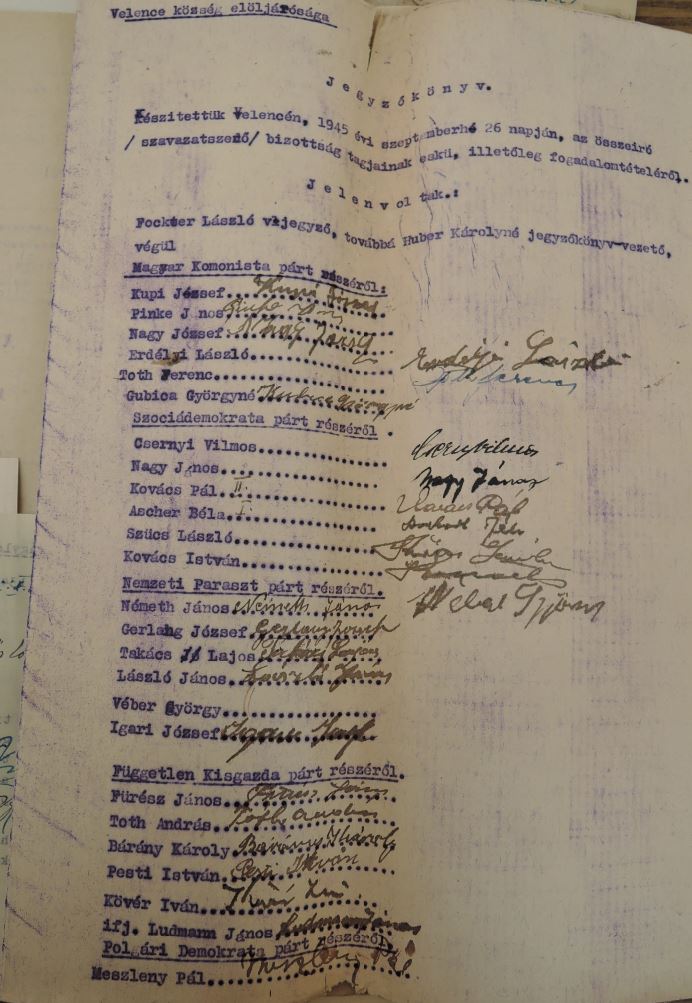 Velence község elöljárósága
Jegyzőkönyv.
Készitettük Velencén, 1945 évi szeptemberhó 26 napján, az összeiró
/ szavazatszedő/ bizottság tagjainak eskü, illetőleg fogadalomtételéről.
Jelenvoltak.:
Fockter László vjegyző, továbbá Huber Károlyné jegyzőkönyv-vezető,
végül
Magyar Komonista párt részéről:
Kupi József
Pinke János
Nagy József Nagy József
Erdélyi László Erdélyi László
Toth Ferenc Toth Ferenc
Gubica Györgyné Gubica Györgyné
Szociádemokrata párt részéről .
Csernyi Vilmos Csernyi Vilmos
Nagy János Nagy János
Kovács Pál II. Kovács Pál
Ascher Béla I.
Szücs László Szücs László
Kovács István
Nemzeti Paraszt párt részéről.
Németh János Németh János
Gerlang József
Takács Lajos
László János László János
Véber György Weber György
Igari József Igari József
Független Kisgazda párt részéről.
Fürész János Fürész János
Toth András Toth András
Bárány Károly Bárány Károly
Pesti István Pesti István
Kövér Iván
ifj. Ludmann János Ludmann János
Polgári Demokrata párt részéről
Meszleny Pál Meszleny Pál